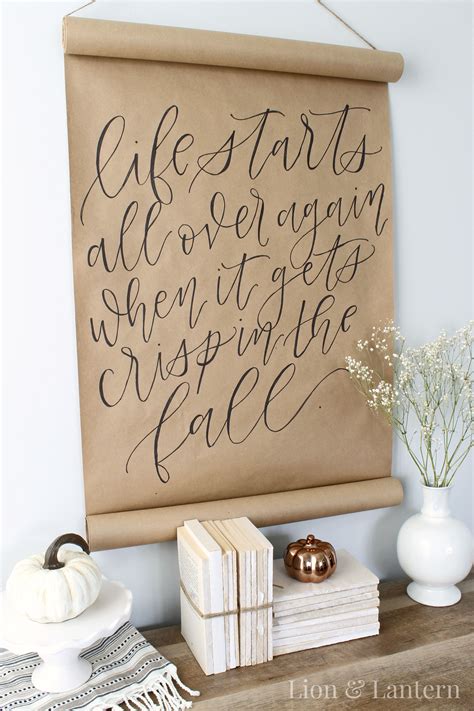 life starts
all over again
when it gets
crisp in the
fall
Lion & Lantern